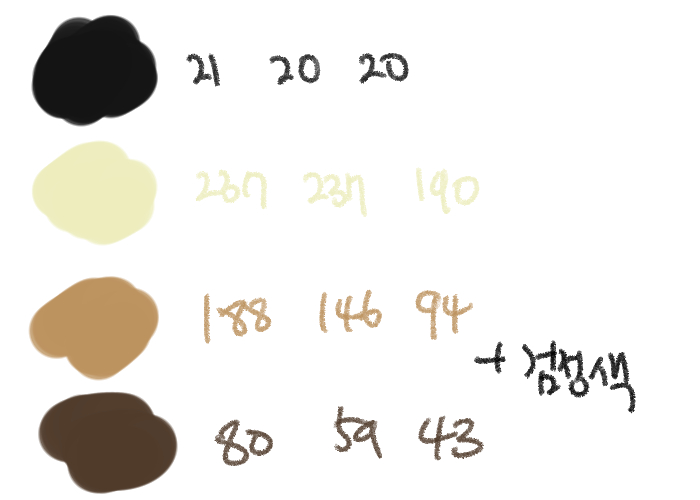 21 20 20
237 237 190
188 146 94
+ 검정색
80 59 43